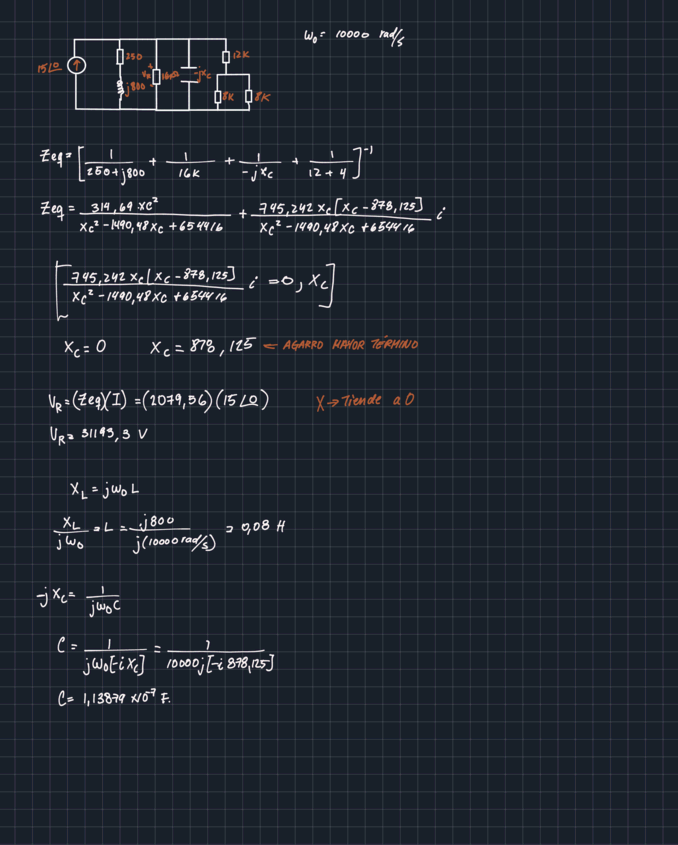 ω₀ = 10000 rad/s
15∠0
250
j800
+
VR
-
16kΩ
-jXc
12K
8K
8K
Zeq = [ 1/(250+j800) + 1/16K + 1/(-jXc) + 1/(12+4) ]⁻¹
Zeq = 314,69 Xc²/(Xc² - 1490,48Xc + 654416) + 745,242 Xc[Xc - 878,125]/(Xc² - 1490,48Xc + 654416) i
[ 745,242 Xc[Xc - 878,125]/(Xc² - 1490,48Xc + 654416) i = 0, Xc ]
Xc = 0 Xc = 878,125 ⇐ AGARRO MAYOR TÉRMINO
VR = (Zeq)(I) = (2079,56)(15∠0) X → Tiende a 0
VR = 31193,3 V
XL = jω₀L
XL/jω₀ = L = j800/j(10000 rad/s) = 0,08 H
-jXc = 1/jω₀C
C = 1/jω₀[-iXc] = 1/10000j[-i 878,125]
C = 1,13879 ×10⁻⁷ F.